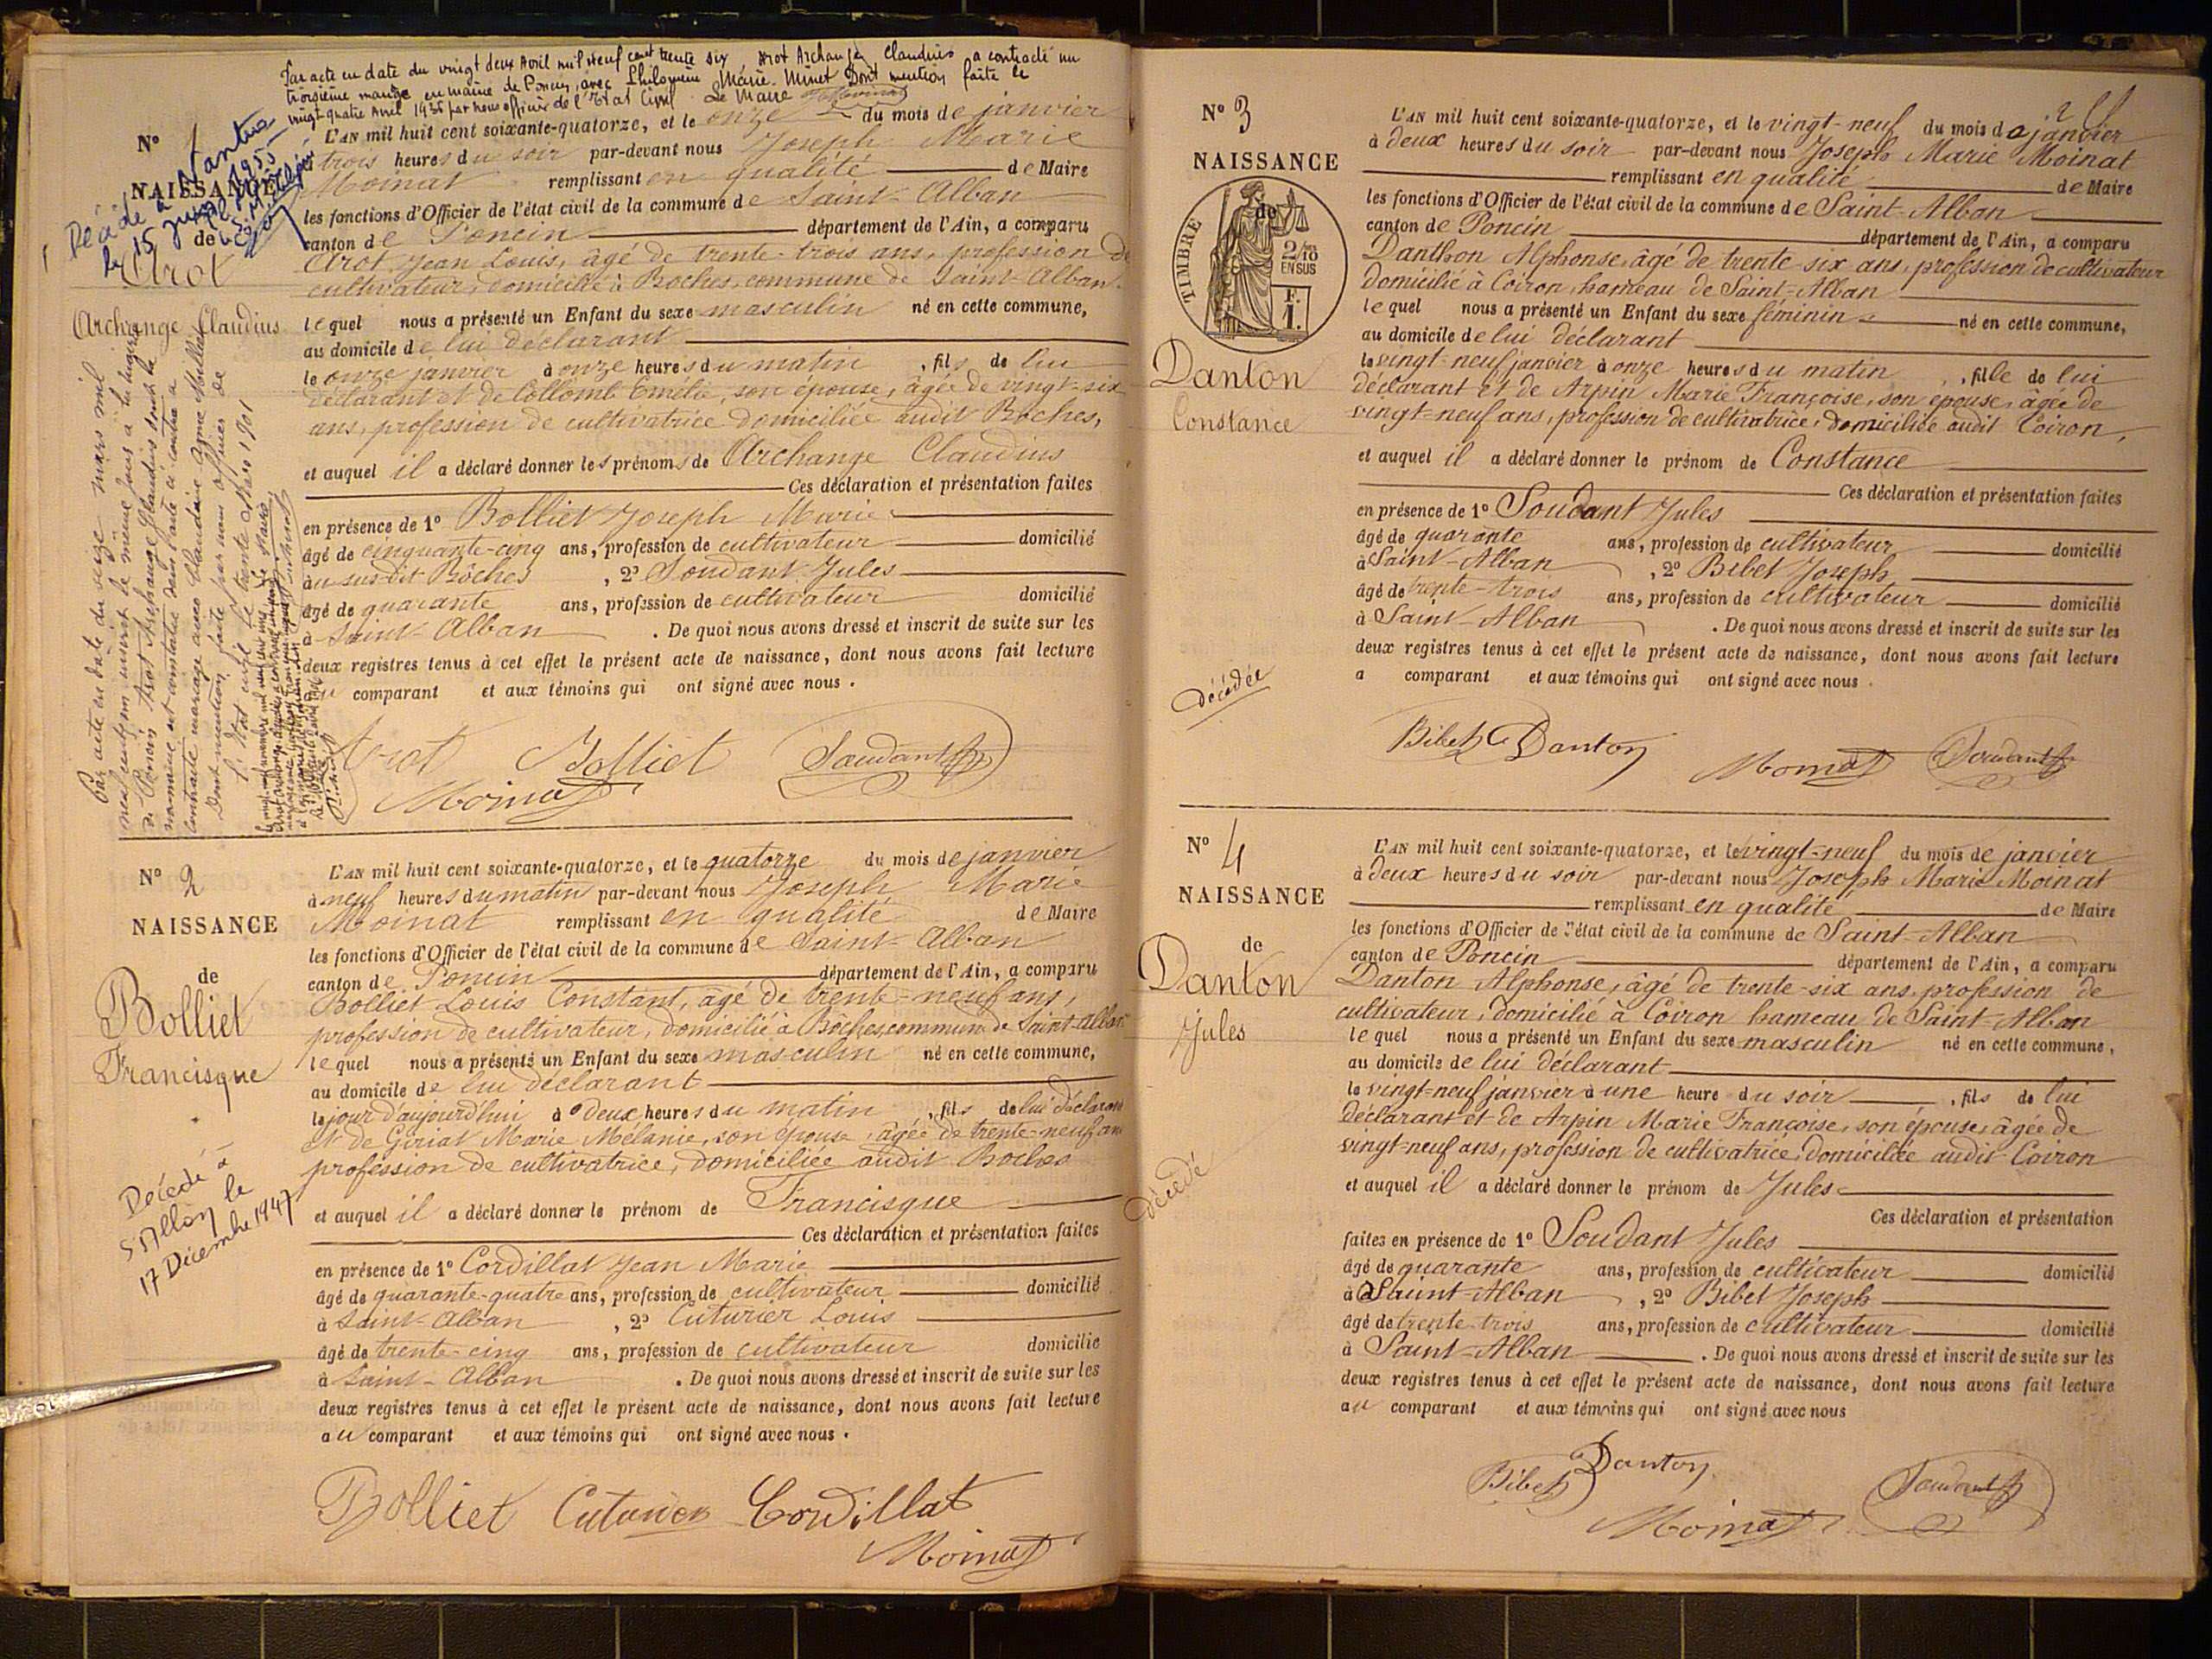 Par acte en date du vingt deux Avril mil neuf cent trente six, Arot Archange Claudius a contracté un
troisième mariage en mairie de Poncin, avec Philomène Marie Minet Dont mention faite le
vingt quatre Avril 1936 par nous officier de l'Etat Civil Le Maire
N° 1
NAISSANCE
de
Arot
Archange Claudius
Décédé à Nantua
le 15 juin 1955
L'AN mil huit cent soixante-quatorze, et le onze du mois de janvier
à trois heures du soir par-devant nous Joseph Marie
Moinat remplissant en qualité de Maire
les fonctions d'Officier de l'état civil de la commune de Saint-Alban
canton de Poncin département de l'Ain, a comparu
Arot Jean Louis, âgé de trente-trois ans, profession de
cultivateur, domicilié à Boches, commune de Saint-Alban
lequel nous a présenté un Enfant du sexe masculin né en cette commune,
au domicile de lui déclarant
le onze janvier à onze heures du matin, fils de lui
déclarant et de Collomb Emélie, son épouse, âgée de vingt-six
ans, profession de cultivatrice domiciliée audit Boches,
et auquel il a déclaré donner les prénoms de Archange Claudius
Ces déclaration et présentation faites
en présence de 1° Bolliet Joseph Marie
âgé de cinquante-cinq ans, profession de cultivateur domicilié
au susdit Bôches, 2° Soudant Jules
âgé de quarante ans, profession de cultivateur domicilié
à Saint-Alban. De quoi nous avons dressé et inscrit de suite sur les
deux registres tenus à cet effet le présent acte de naissance, dont nous avons fait lecture
au comparant et aux témoins qui ont signé avec nous.
Arot Bolliet Soudant
Moinat
Par acte en date du seize mars mil
neuf cent un
de Poncin Arot Archange Claudius
contracté mariage avec Claudine
Dont mention faite par nous officier de
l'état civil le trente Mars 1901
N° 2
NAISSANCE
de
Bolliet
Francisque
Décédé à
St Alban le
17 Décembre 1947
L'AN mil huit cent soixante-quatorze, et le quatorze du mois de janvier
à neuf heures du matin par-devant nous Joseph Marie
Moinat remplissant en qualité de Maire
les fonctions d'Officier de l'état civil de la commune de Saint-Alban
canton de Poncin département de l'Ain, a comparu
Bolliet Louis Constant, âgé de trente-neuf ans,
profession de cultivateur, domicilié à Bôches, commune de Saint-Alban
lequel nous a présenté un Enfant du sexe masculin né en cette commune,
au domicile de lui déclarant
le jour d'aujourd'hui à deux heures du matin, fils de lui déclarant
et de Giriat Marie Mélanie, son épouse, âgée de trente-neuf ans
profession de cultivatrice, domiciliée audit Boches
et auquel il a déclaré donner le prénom de Francisque
Ces déclaration et présentation faites
en présence de 1° Cordillat Jean Marie
âgé de quarante-quatre ans, profession de cultivateur domicilié
à Saint-Alban, 2° Cuturier Louis
âgé de trente-cinq ans, profession de cultivateur domicilié
à Saint-Alban. De quoi nous avons dressé et inscrit de suite sur les
deux registres tenus à cet effet le présent acte de naissance, dont nous avons fait lecture
au comparant et aux témoins qui ont signé avec nous.
Bolliet Cuturier Cordillat
Moinat
N° 3
NAISSANCE
de
TIMBRE
2/10
EN SUS
F.
1.
Danton
Constance
décédée
L'AN mil huit cent soixante-quatorze, et le vingt-neuf du mois de janvier
à deux heures du soir par-devant nous Joseph Marie Moinat
remplissant en qualité de Maire
les fonctions d'Officier de l'état civil de la commune de Saint-Alban
canton de Poncin département de l'Ain, a comparu
Danthon Alphonse, âgé de trente-six ans, profession de cultivateur
domicilié à Coiron, hameau de Saint-Alban
lequel nous a présenté un Enfant du sexe féminin né en cette commune,
au domicile de lui déclarant
le vingt-neuf janvier à onze heures du matin, fille de lui
déclarant et de Arpin Marie Françoise, son épouse, âgée de
vingt-neuf ans, profession de cultivatrice, domiciliée audit Coiron,
et auquel il a déclaré donner le prénom de Constance
Ces déclaration et présentation faites
en présence de 1° Soudant Jules
âgé de quarante ans, profession de cultivateur domicilié
à Saint-Alban, 2° Bibet Joseph
âgé de trente-trois ans, profession de cultivateur domicilié
à Saint-Alban. De quoi nous avons dressé et inscrit de suite sur les
deux registres tenus à cet effet le présent acte de naissance, dont nous avons fait lecture
a comparant et aux témoins qui ont signé avec nous.
Bibet Danton Moinat Soudant
N° 4
NAISSANCE
de
Danton
Jules
décédé
L'AN mil huit cent soixante-quatorze, et le vingt-neuf du mois de janvier
à deux heures du soir par-devant nous Joseph Marie Moinat
remplissant en qualité de Maire
les fonctions d'Officier de l'état civil de la commune de Saint-Alban
canton de Poncin département de l'Ain, a comparu
Danton Alphonse, âgé de trente-six ans, profession de
cultivateur, domicilié à Coiron hameau de Saint-Alban
lequel nous a présenté un Enfant du sexe masculin né en cette commune,
au domicile de lui déclarant
le vingt-neuf janvier à une heure du soir, fils de lui
déclarant et de Arpin Marie Françoise, son épouse, âgée de
vingt-neuf ans, profession de cultivatrice, domiciliée audit Coiron
et auquel il a déclaré donner le prénom de Jules
Ces déclaration et présentation
faites en présence de 1° Soudant Jules
âgé de quarante ans, profession de cultivateur domicilié
à Saint-Alban, 2° Bibet Joseph
âgé de trente-trois ans, profession de cultivateur domicilié
à Saint-Alban. De quoi nous avons dressé et inscrit de suite sur les
deux registres tenus à cet effet le présent acte de naissance, dont nous avons fait lecture
au comparant et aux témoins qui ont signé avec nous
Bibet Danton Soudant
Moinat